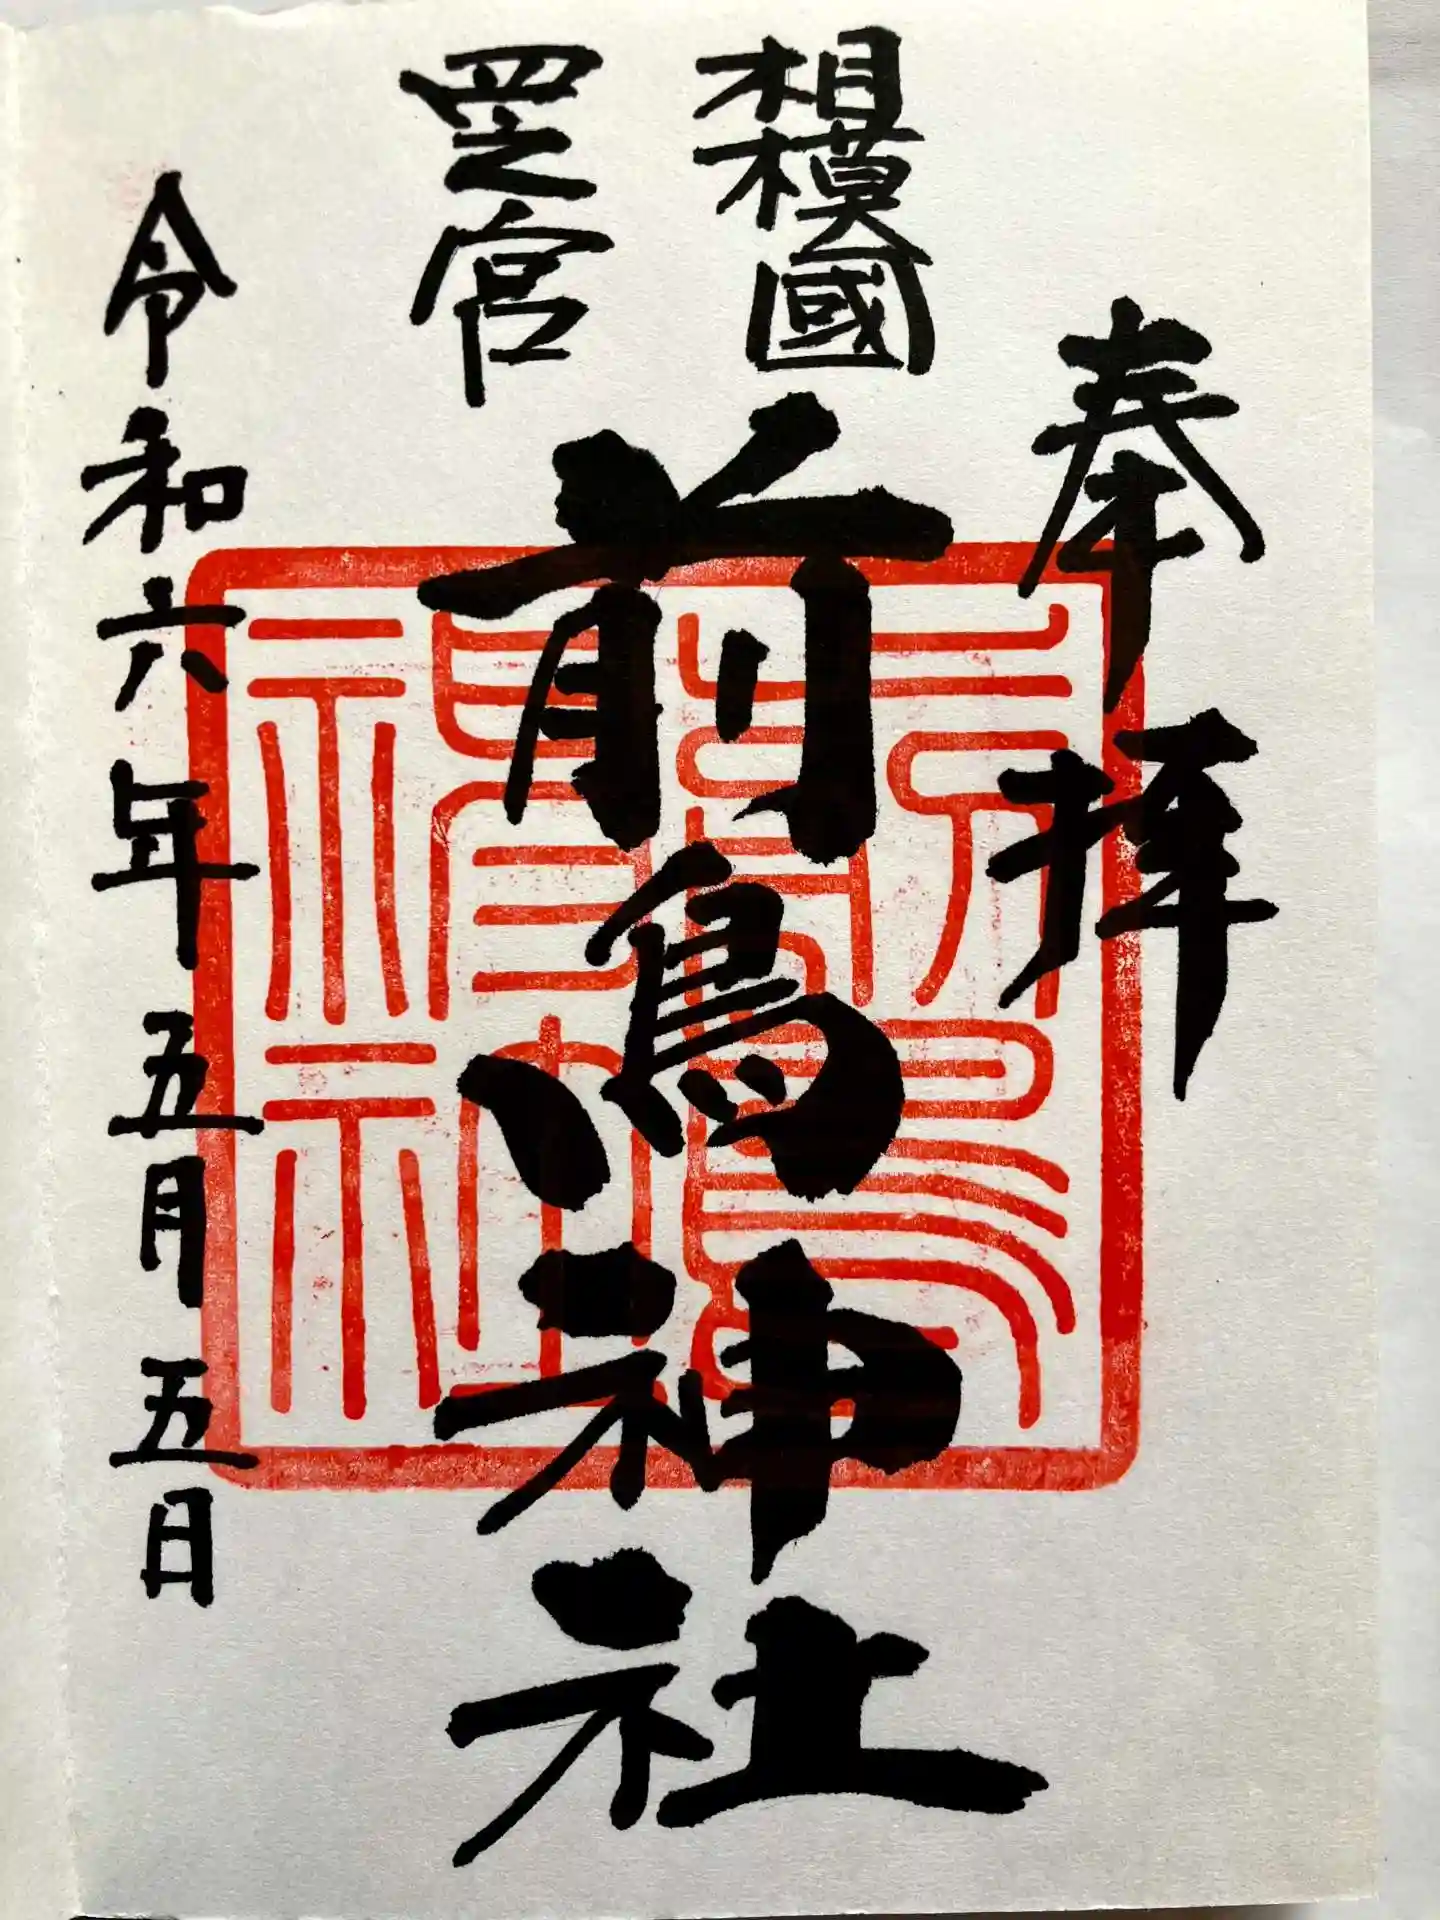 奉拝
相模國
四之宮
前鳥神社
令和六年五月五日